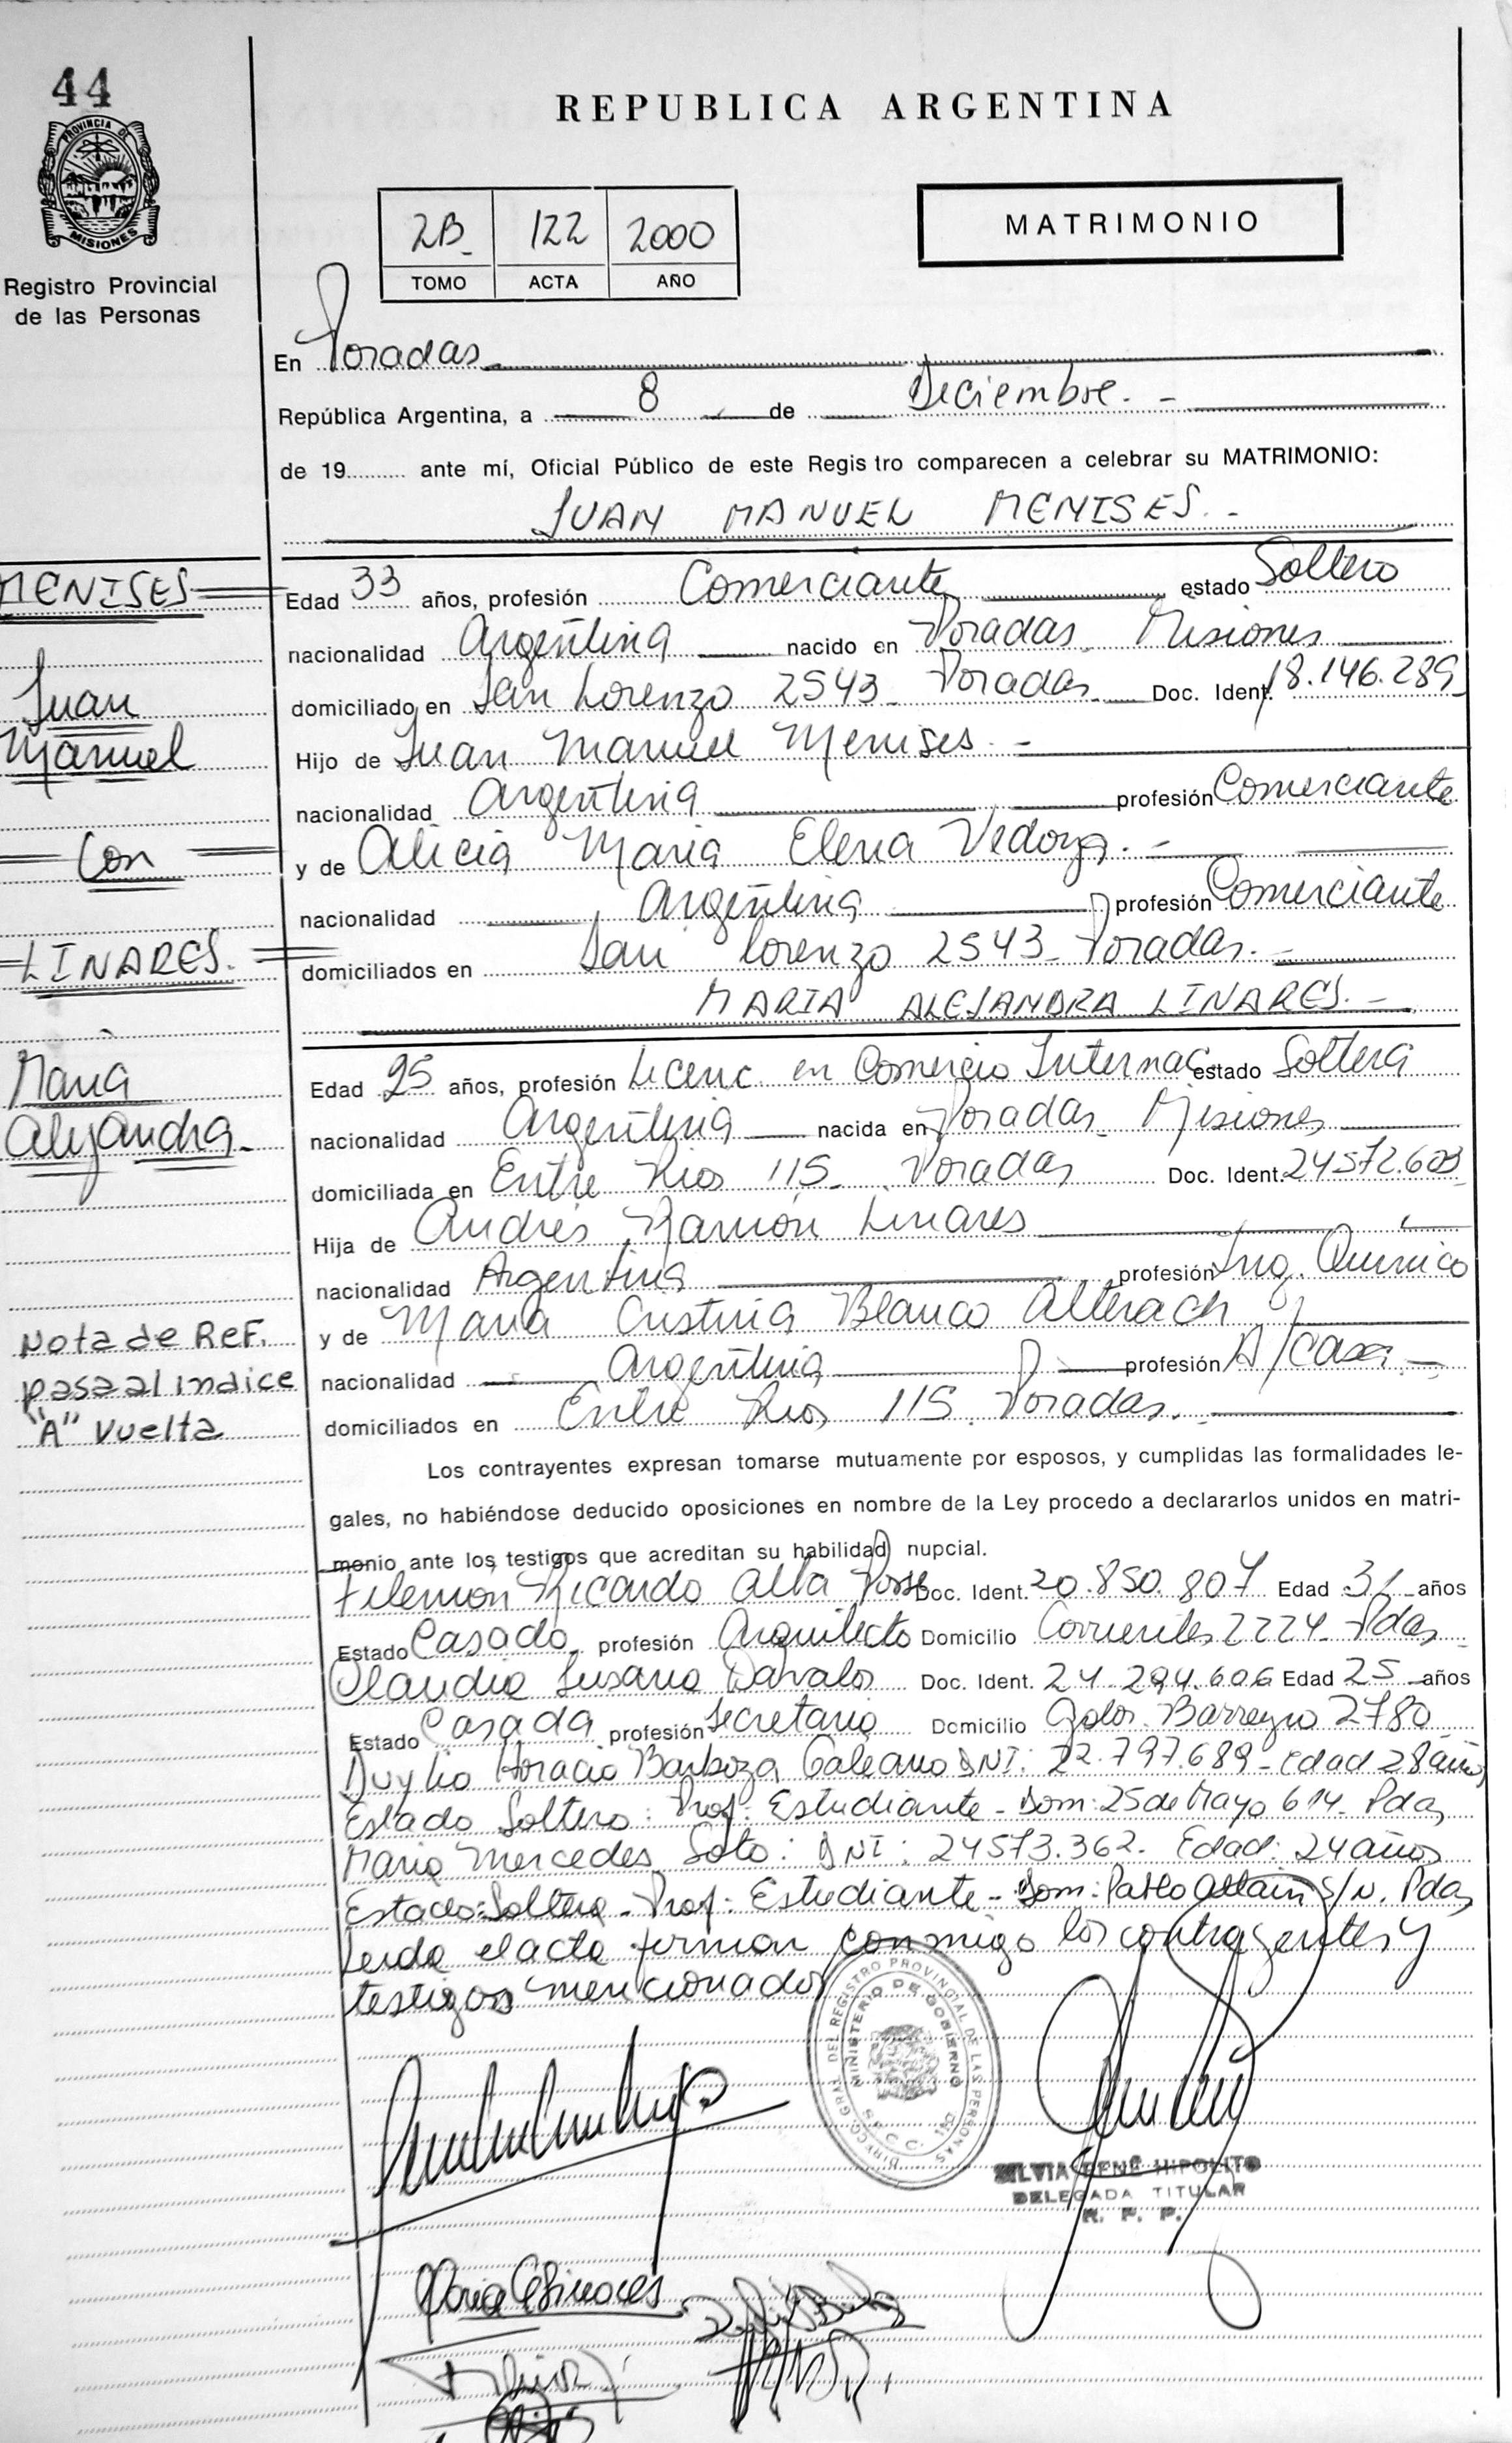 44
PROVINCIA DE
MISIONES
Registro Provincial
de las Personas
REPUBLICA ARGENTINA
2B 122 2000
TOMO ACTA AÑO
MATRIMONIO
En Posadas
República Argentina, a 8 de Diciembre.-
de 19......... ante mí, Oficial Público de este Regis tro comparecen a celebrar su MATRIMONIO:
JUAN MANUEL MENISES.-
MENISES
Juan
Manuel
Con
LINARES.
Maria
Alejandra
Nota de ReF.
pasa al indice
"A" vuelta
Edad 33 años, profesión Comerciante estado Soltero
nacionalidad Argentina nacido en Posadas Misiones
domiciliado en San Lorenzo 2543 Posadas Doc. Ident. 18.146.289
Hijo de Juan Manuel Menises.-
nacionalidad Argentina profesión Comerciante
y de Alicia Maria Elena Vedoya.-
nacionalidad Argentina profesión Comerciante
domiciliados en San Lorenzo 2543 Posadas.-
MARIA ALEJANDRA LINARES.-
Edad 25 años, profesión Licenc. en Comercio Internac. estado Soltera
nacionalidad Argentina nacida en Posadas Misiones
domiciliada en Entre Rios 115 Posadas Doc. Ident. 24572.603
Hija de Andrés Ramón Linares
nacionalidad Argentina profesión Ing. Químico
y de Maria Cristina Blanco Alterach
nacionalidad Argentina profesión A/casa
domiciliados en Entre Rios 115 Posadas.
Los contrayentes expresan tomarse mutuamente por esposos, y cumplidas las formalidades le-
gales, no habiéndose deducido oposiciones en nombre de la Ley procedo a declararlos unidos en matri-
monio ante los testigos que acreditan su habilidad nupcial.
Filemón Ricardo Alba Posse Doc. Ident. 20.850.807 Edad 31 años
Estado Casado profesión Arquitecto Domicilio Corrientes 2224 Pdas
Claudia Susana Davalos Doc. Ident. 24.294.606 Edad 25 años
Estado Casada profesión Secretaria Domicilio Gdor. Barreyro 2780
Duylio Horacio Barboza Galeano DNI: 22.797.689 - Edad 28 años
Estado Soltero: Prof: Estudiante - Dom: 25 de Mayo 614 - Pdas
Maria Mercedes Soto: DNI: 24573.362. Edad: 24 años
Estado: Soltera - Prof: Estudiante - Dom: Pablo Allain S/N. Pdas
Leida el acta firman conmigo los contrayentes y
testigos mencionados
DIRECC. GRAL. DEL REGISTRO PROVINCIAL DE LAS PERSONAS
MINISTERIO DE GOBIERNO
SILVIA RENÉ HIPOLITO
DELEGADA TITULAR
R. P. P.